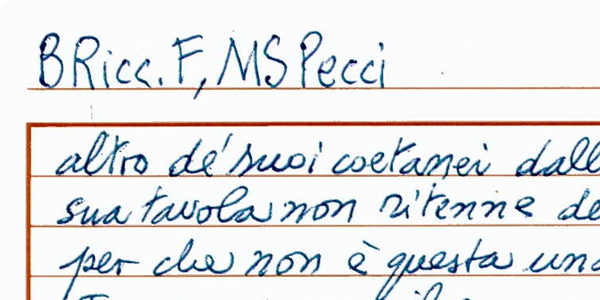 BRicc. F, MS Pecci
altro de' suoi coetanei dall
sua tavola non ritenne de
per che non è questa una